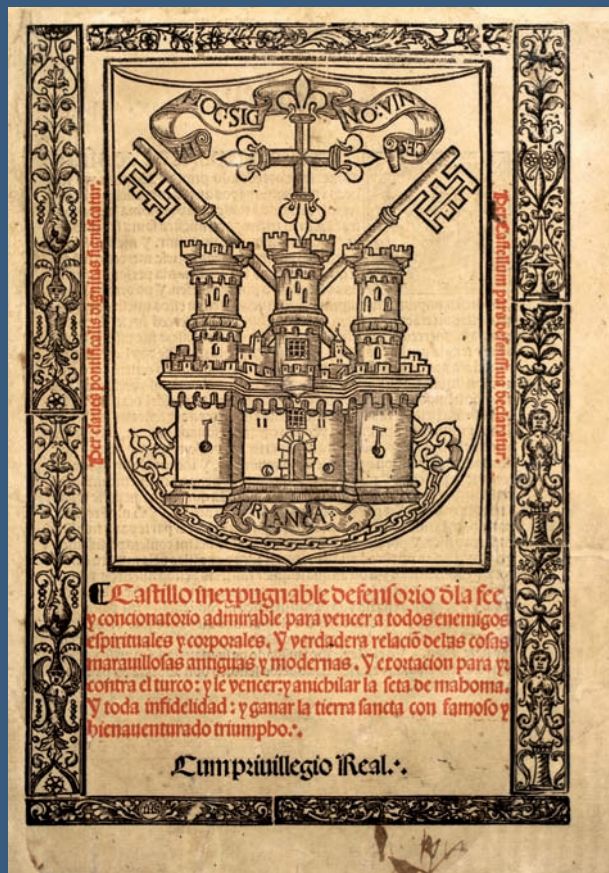 IN HOC·SIG NO·VIN CES
Per claues pontificalis dignitas significatur.
Per Castellum pars defenssiua declaratur.
ARLANÇA
Castillo inexpugnable defensorio dˡa fee
y concionatorio admirable para vencer a todos enemigos
espirituales y corporales. Y verdadera relaciõ delas cosas
marauillosas antiguas y modernas. Y exortacion para yr
contra el turco: y le vencer: y anichilar la seta de mahoma.
Y toda infidelidad: y ganar la tierra sancta con famoso y
bienauenturado triumpho.
Cum priuillegio Real.